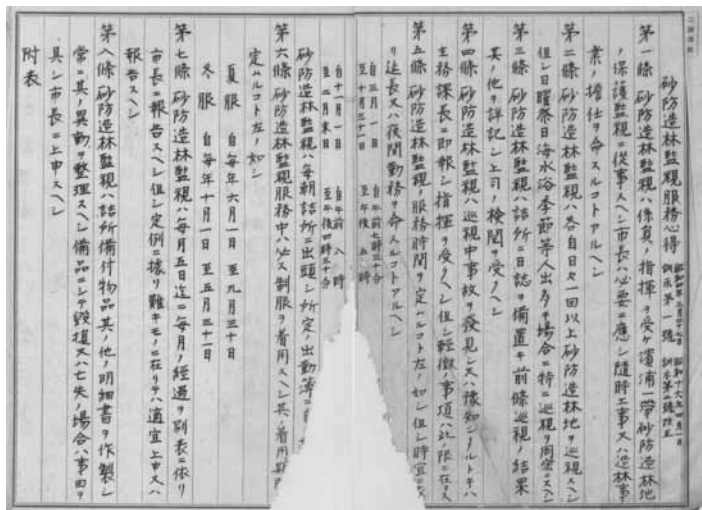 砂防造林監視服務心得
昭和四年三月二十七日 訓示第一號
昭和十六年四月一日 訓示第二號改正
第一條 砂防造林監視ハ係員ノ指揮ヲ受ケ濱浦一帶砂防造林地
ノ保護監視ニ從事スヘシ市長ハ必要ニ應シ隨時工事又ハ造林事
業ノ擔任ヲ命スルコトアルヘシ
第二條 砂防造林監視ハ各自日々一回以上砂防造林地ヲ巡視スヘシ
但シ日曜祭日海水浴季節等人出多キ場合ニ特ニ巡視ヲ周密ニスヘシ
第三條 砂防造林監視ハ詰所ニ日誌ヲ備置キ前條巡視ノ結果
其ノ他ヲ詳記シ上司ノ檢閲ヲ受クヘシ
第四條 砂防造林監視ハ巡視中事故ヲ發見シ又ハ豫知シタルトキハ
主務課長ニ即報シ指揮ヲ受クヘシ但シ輕微ノ事項ハ此ノ限ニ在ラス
第五條 砂防造林監視ノ服務時間ヲ定ムルコト左ノ如シ但シ時宜ニ
リ延長又ハ夜間勤務ヲ命スルコトアルヘシ
自三月一日 至十月三十一日 自午前七時三十分 至午後五時
自十一月一日 至二月末日 自午前八時 至午後四時三十分
砂防造林監視ハ每朝詰所ニ出頭シ所定ノ出勤簿ニ自
第六條 砂防造林監視服務中ハ必ス制服ヲ着用スヘシ其ノ着用期
定ムルコト左ノ如シ
夏服 自每年六月一日 至九月三十日
冬服 自每年十月一日 至五月三十一日
第七條 砂防造林監視ハ每月五日迄ニ每月ノ經過ヲ別表ニ依リ
市長ニ報告スヘシ但シ定例ニ據リ難キモノニ在リテハ適宜上申又ハ
報告スヘシ
第八條 砂防造林監視ハ詰所備付物品其ノ他ノ明細書ヲ作製シ
常ニ其ノ異動ヲ整理スヘシ備品ニシテ毀損又ハ亡失ノ場合ハ事由ヲ
具シ市長ニ上申スヘシ
附表